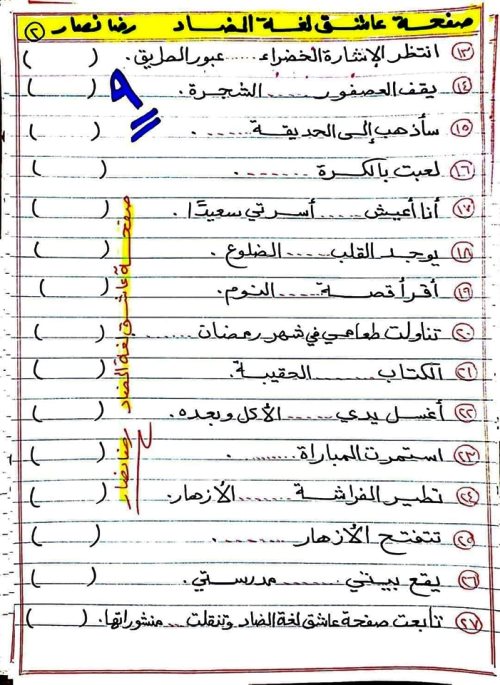 صفحة عاشق لغة الضاد رضا نصار (٢)
(١٣) انتظر الإشارة الخضراء ...... عبور الطريق. ( )
(١٤) يقف العصفور ........ الشجرة. ( )
(١٥) سأذهب إلى الحديقة ........ . ( )
(١٦) لعبت بالكرة ......... . ( )
(١٧) أنا أعيش ...... أسرتي سعيدًا. ( )
(١٨) يوجد القلب ...... الضلوع. ( )
(١٩) أقرأ قصة ........ النوم. ( )
(٢٠) تناولت طعامي في شهر رمضان .......... ( )
(٢١) الكتاب .......... الحقيبة. ( )
(٢٢) أغسل يدي ........ الأكل وبعده. ( )
(٢٣) استمرت المباراة ......... . ( )
(٢٤) تطير الفراشة ........ الأزهار. ( )
(٢٥) تتفتح الأزهار ......... . ( )
(٢٦) يقع بيتي ......... مدرستي. ( )
(٢٧) تابعت صفحة عاشق لغة الضاد وتنقلت .... منشوراتها. ( )
٩
صفحة عاشق لغة الضاد رضا نصار